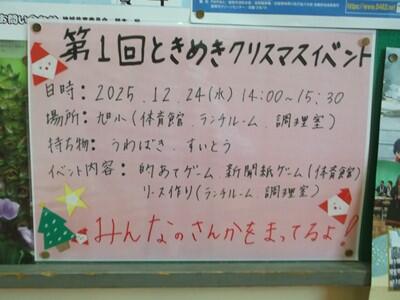 第1回ときめきクリスマスイベント
日時：2025.12.24(水)14:00～15:30
場所：旭小(体育館.ランチルーム.調理室)
持ち物：うわばき.すいとう
イベント内容：的あてゲーム.新聞紙ゲーム(体育館)
リース作り(ランチルーム.調理室)
みんなのさんかをまってるよ!